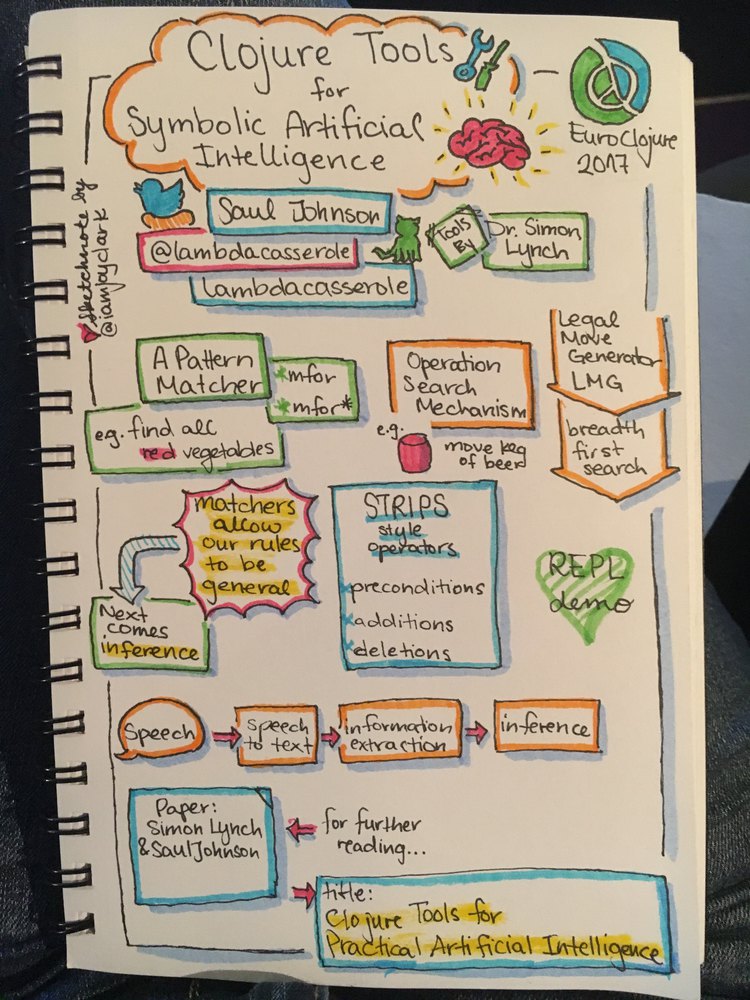 Clojure Tools
for
Symbolic Artificial
Intelligence
EuroClojure
2017
Sketchnote by
@iamjoyclark
Saul Johnson
@lambdacasserole
lambdacasserole
Tools
By
Dr. Simon
Lynch
A Pattern
Matcher
*mfor
*mfor*
e.g. find all
red vegetables
Operation
Search
Mechanism
e.g.
move keg
of beer
Legal
Move
Generator
LMG
breadth
first
search
matchers
allow
our rules
to be
general
Next
comes
inference
STRIPS
style
operators
*preconditions
*additions
*deletions
REPL
demo
Speech
speech
to text
information
extraction
inference
Paper:
Simon Lynch
& Saul Johnson
for further
reading...
title:
Clojure Tools for
Practical Artificial Intelligence